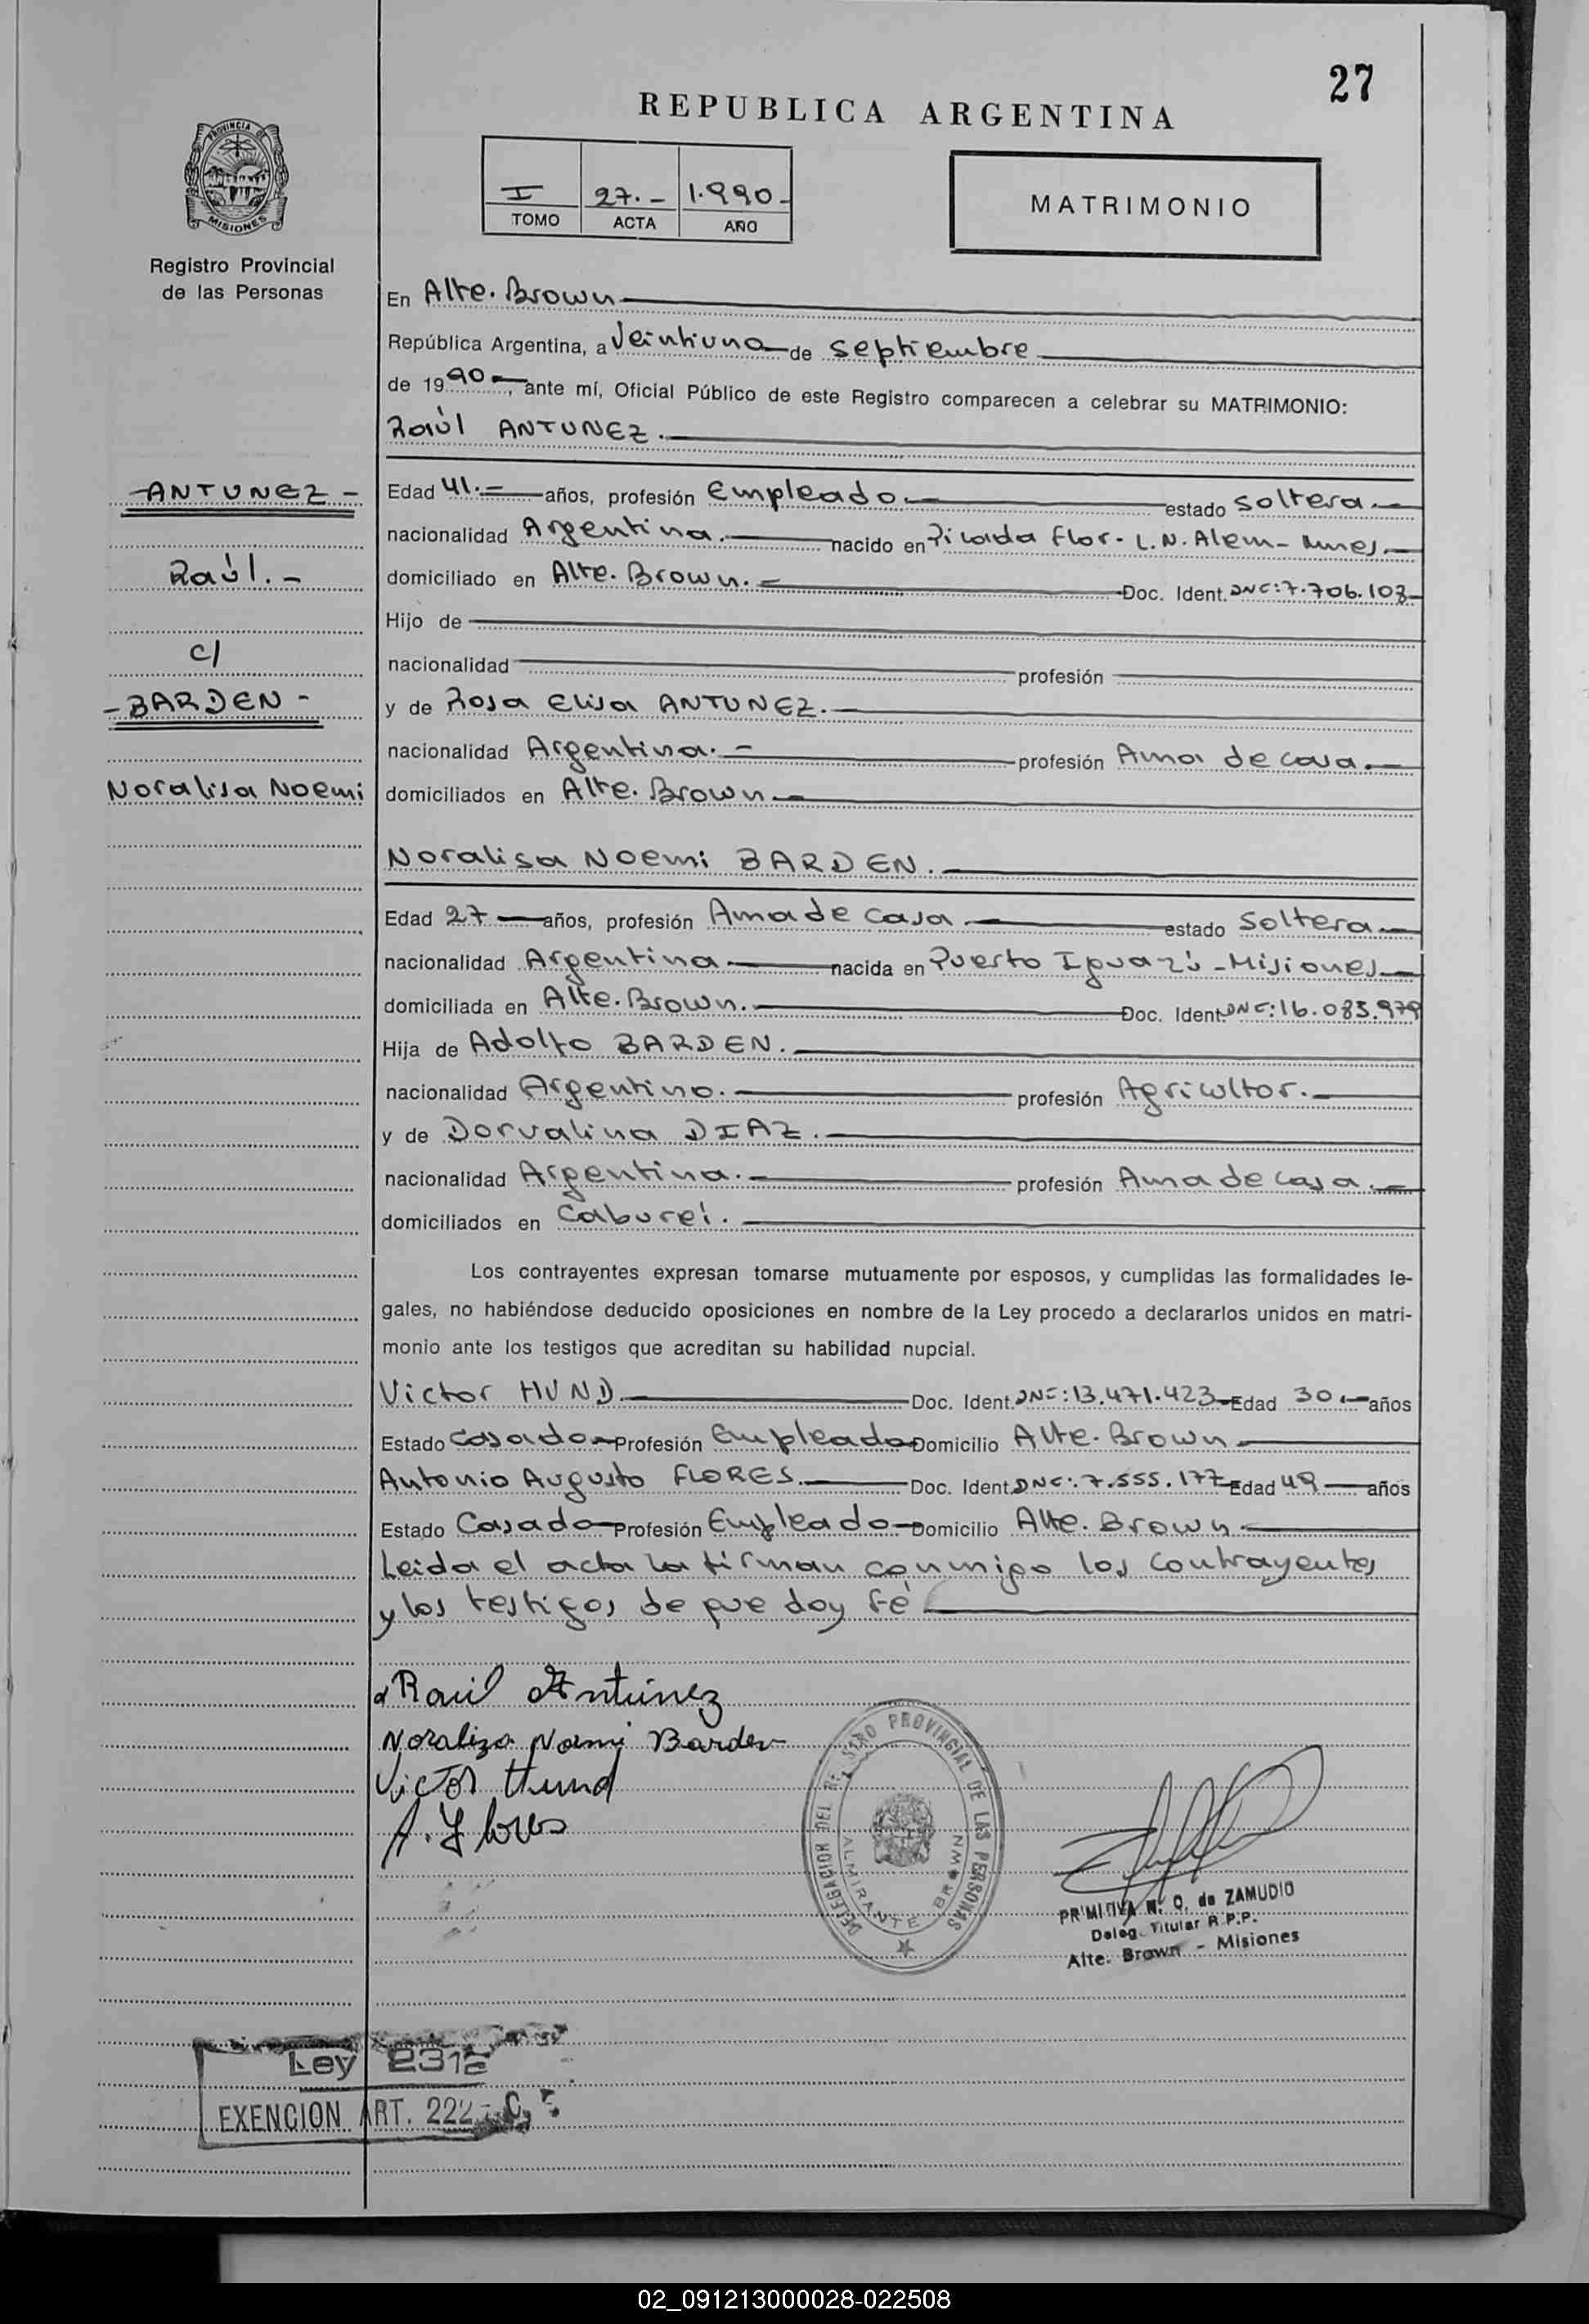 27
REPUBLICA ARGENTINA
I 27.- 1.990-
TOMO ACTA AÑO
MATRIMONIO
PROVINCIA DE MISIONES
Registro Provincial
de las Personas
En Alte. Brown
República Argentina, a Veintiuno de septiembre
de 1990, ante mí, Oficial Público de este Registro comparecen a celebrar su MATRIMONIO:
Raúl ANTUNEZ.
-ANTUNEZ-
Raúl.-
c/
-BARDEN-
Noralisa Noemi
Edad 41.- años, profesión Empleado.- estado Soltera.-
nacionalidad Argentina.- nacido en Picada Flor- L.N. Alem-
domiciliado en Alte. Brown.- Doc. Ident. DNI:7.706.103-
Hijo de
nacionalidad profesión
y de Rosa Elisa ANTUNEZ.
nacionalidad Argentina.- profesión Ama de casa.-
domiciliados en Alte. Brown.-
Noralisa Noemi BARDEN.
Edad 27 años, profesión Ama de casa.- estado Soltera
nacionalidad Argentina.- nacida en Puerto Iguazú-Misiones
domiciliada en Alte. Brown.- Doc. Ident. DNI:16.083.979
Hija de Adolfo BARDEN.
nacionalidad Argentino.- profesión Agricultor.-
y de Dorvalina DIAZ.
nacionalidad Argentina.- profesión Ama de casa.-
domiciliados en Caburei.
Los contrayentes expresan tomarse mutuamente por esposos, y cumplidas las formalidades le-
gales, no habiéndose deducido oposiciones en nombre de la Ley procedo a declararlos unidos en matri-
monio ante los testigos que acreditan su habilidad nupcial.
Victor HUND. Doc. Ident. DNI:13.471.423 Edad 30.- años
Estado Casado Profesión Empleado Domicilio Alte. Brown
Antonio Augusto FLORES. Doc. Ident. DNI:7.555.177 Edad 49 años
Estado Casado Profesión Empleado Domicilio Alte. Brown
Leida el acta la firman conmigo los contrayentes
y los testigos de que doy fé
Raúl Antúnez
Noraliza Noemi Barden
Victor Hund
A. Flores
DELEGACION DEL REGISTRO PROVINCIAL DE LAS PERSONAS
ALMIRANTE BROWN
PRIMITIVA N. O. de ZAMUDIO
Deleg. Titular R.P.P.
Alte. Brown - Misiones
Ley
EXENCION ART. 222
02_091213000028-022508